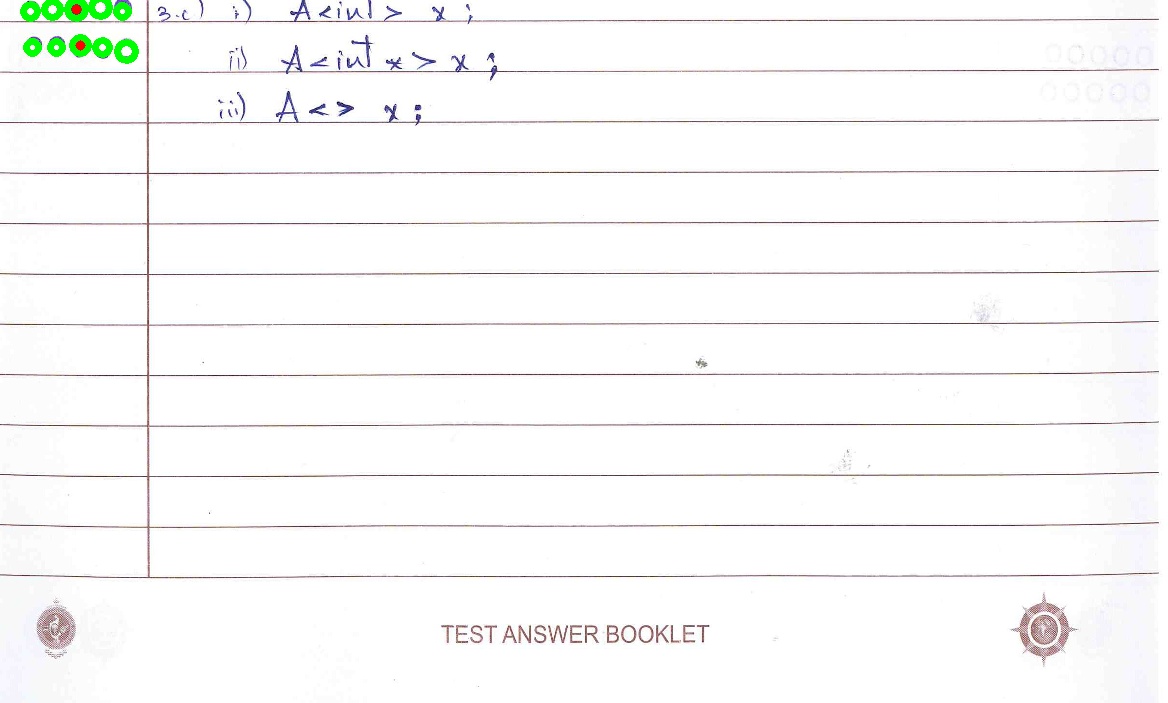 3.c) i) A<int> x;
ii) A<int *> x;
iii) A<> x;
TEST ANSWER BOOKLET